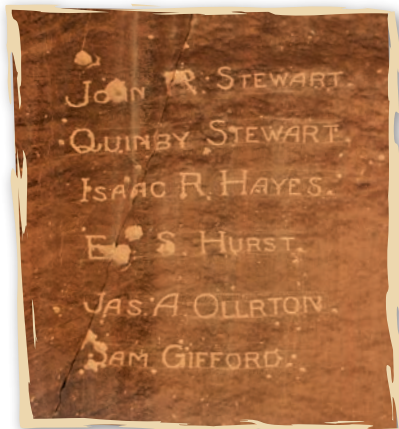 John R. Stewart.
Quinby Stewart.
Isaac R. Hayes.
E. S. Hurst.
Jas. A. Ollrton.
Sam Gifford.